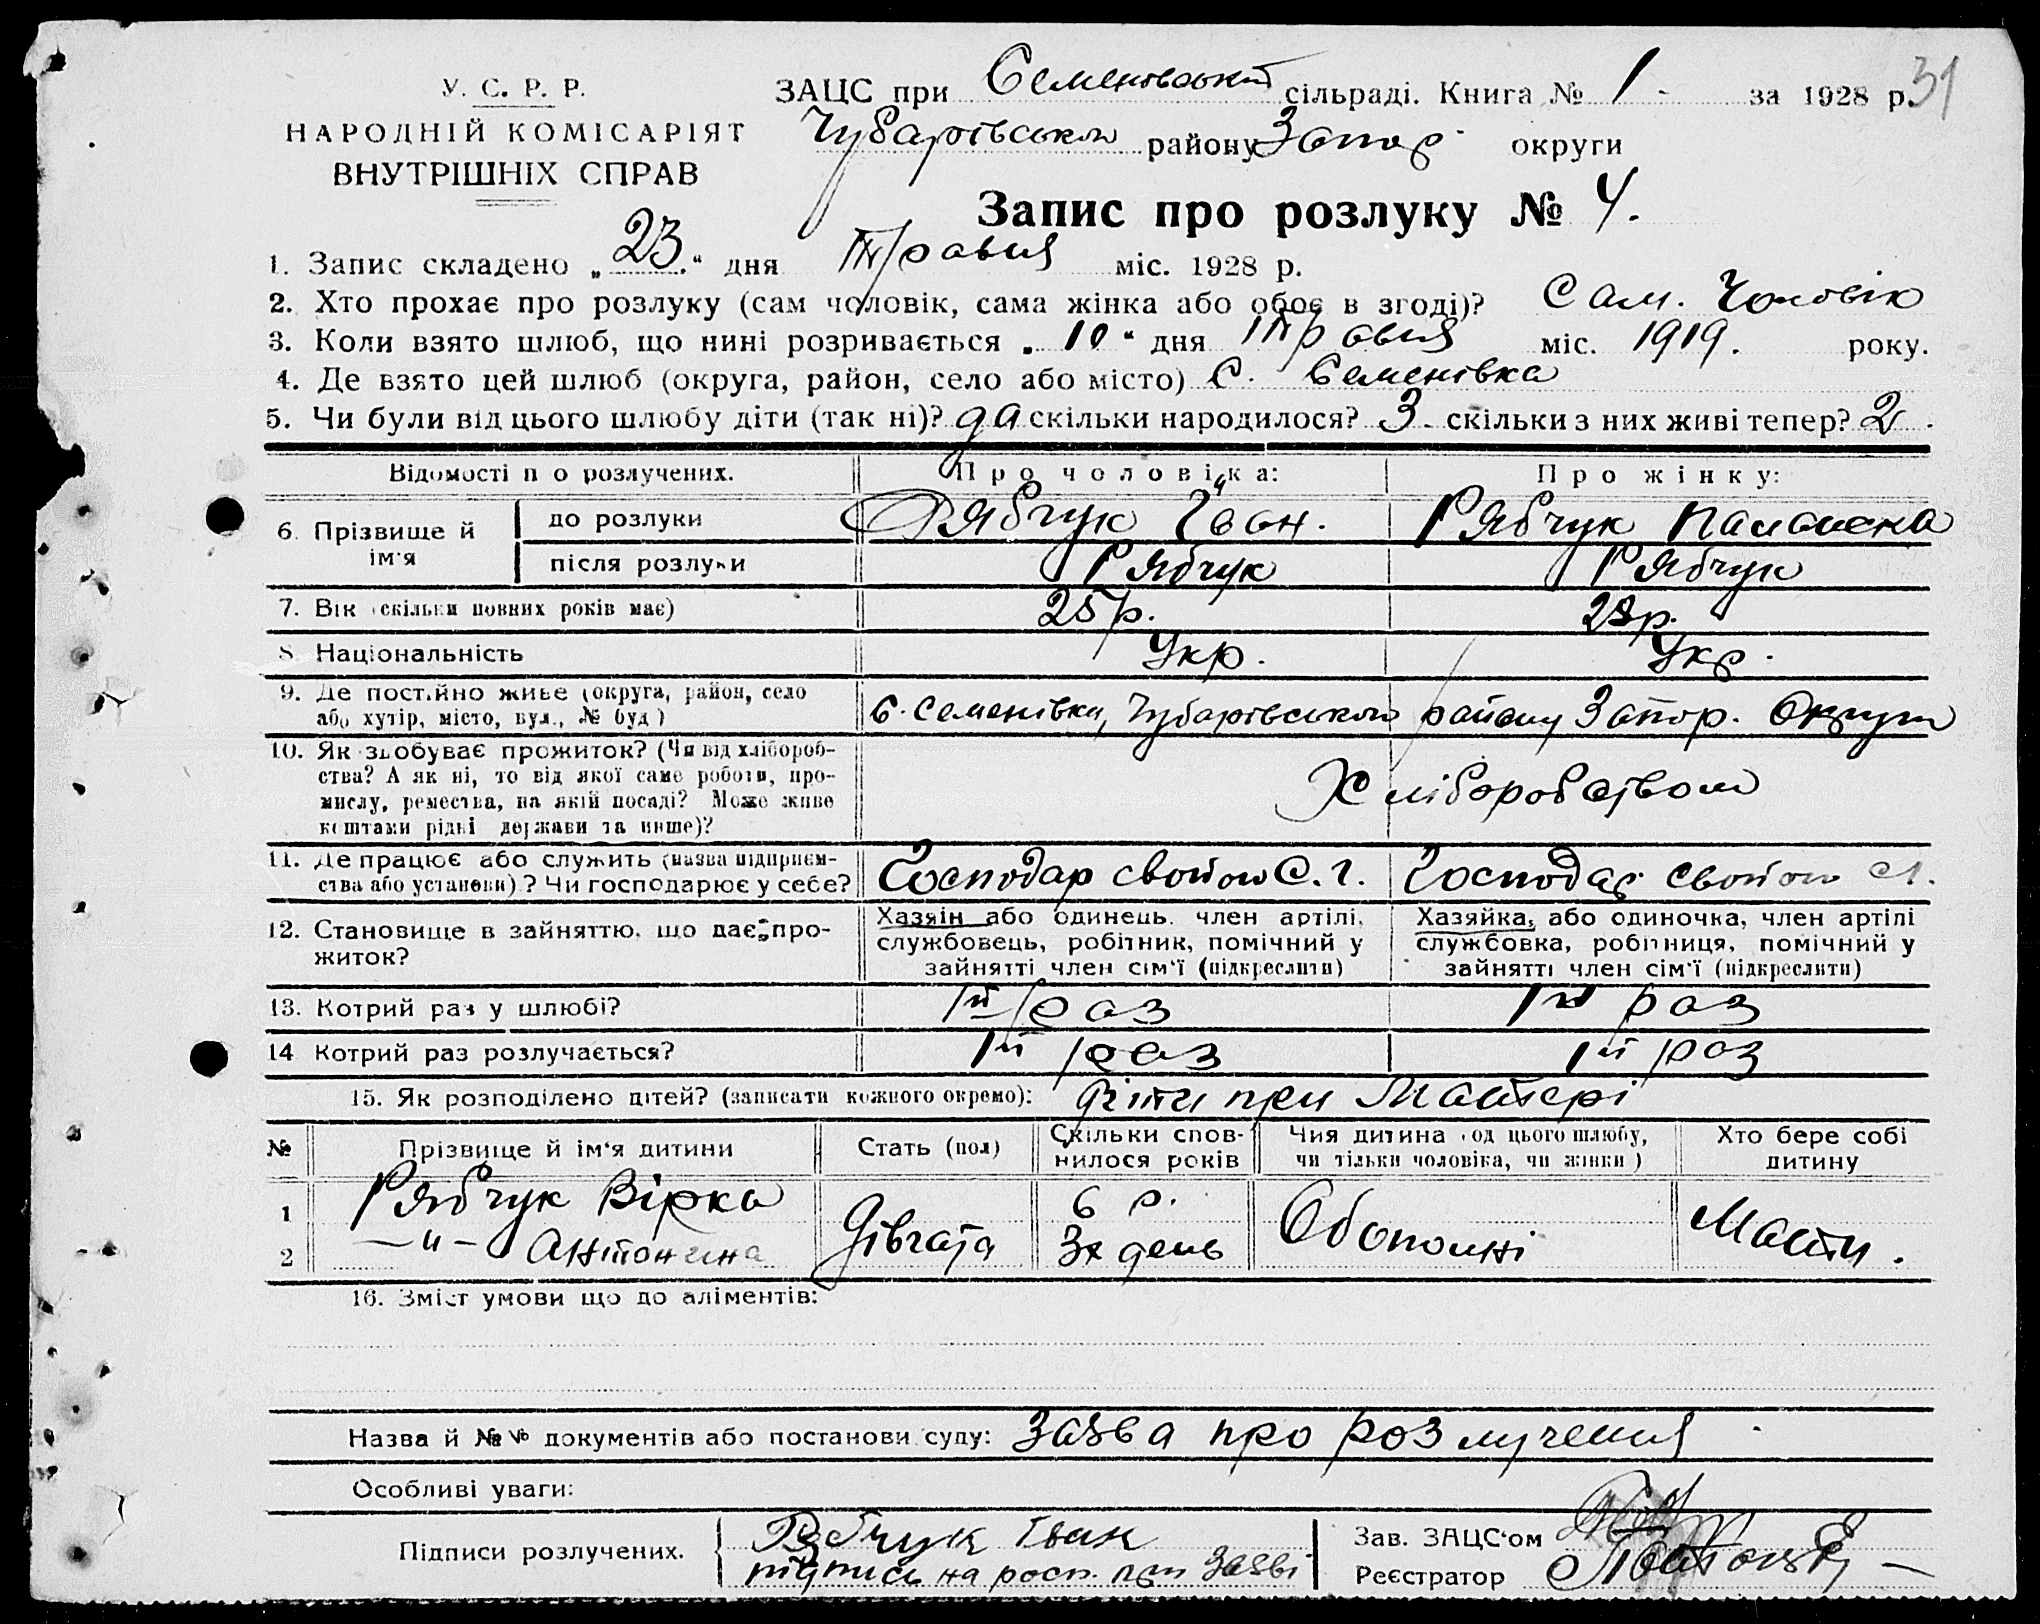 У. С. Р. Р.
НАРОДНІЙ КОМІСАРІЯТ
ВНУТРІШНІХ СПРАВ
ЗАЦС при Семенівській сільраді. Книга № 1 - за 1928 р. 31
Чубарівськом району Запор. округи
Запис про розлуку № 4.
1. Запис складено „23" дня травня міс. 1928 р.
2. Хто прохає про розлуку (сам чоловік, сама жінка або обоє в згоді)? Сам. Чоловік
3. Коли взято шлюб, що нині розривається „10" дня травня міс. 1919. року.
4. Де взято цей шлюб (округа, район, село або місто) С. Семенівка
5. Чи були від цього шлюбу діти (так ні)? да скільки народилося? 3 - скільки з них живі тепер? 2.
Відомості п о розлучених. Про чоловіка: Про жінку:
6. Прізвище й ім'я до розлуки Рябчук Іван. Рябчук Палажена
після розлуки Рябчук Рябчук
7. Вік (скільки повних років має) 25 р. 28 р.
8. Національність Укр. Укр.
9. Де постійно живе (округа, район, село
або хутір, місто, вул., № буд) С. Семенівки, Чубарівськом району Запор. Округи
10. Як здобуває прожиток? (Чи від хлібороб-
ства? А як ні, то від якої саме роботи, про-
мислу, ремества, на якій посаді? Може живе
коштами рідні держави та инше)?
Хліборобством
11. Де працює або служить (назва підприєм-
ства або установи)? Чи господарює у себе? Господар свойом С. Г. Господар свойом С.Г.
12. Становище в зайняттю, що дає про-
житок?
Хазяін або одинець, член артілі,
службовець, робітник, помічний у
зайнятті член сім'ї (підкреслити)
Хазяйка, або одиночка, член артілі
службовка, робітниця, помічний у
зайнятті член сім'ї (підкреслити)
13. Котрий раз у шлюбі? 1й раз 1й раз
14 Котрий раз розлучається? 1й раз 1й раз
15. Як розподілено дітей? (записати кожного окремо): діти при Матері
№ Прізвище й ім'я дитини Стать (пол) Скільки спов-нилося років Чия дитина (од цього шлюбу, чи тільки чоловіка, чи жінки) Хто бере собі дитину
1 Рябчук Вірка Дівчата 6 р. Обопольні Мати.
2 —"— Антонина 3х день
16. Зміст умови що до аліментів:
Назва й №№ документів або постанови суду: Заява про розлучення
Особливі уваги:
Підписи розлучених. Рябчук Іван
підпись на росп. при Заяві
Зав. ЗАЦС'ом
Реєстратор